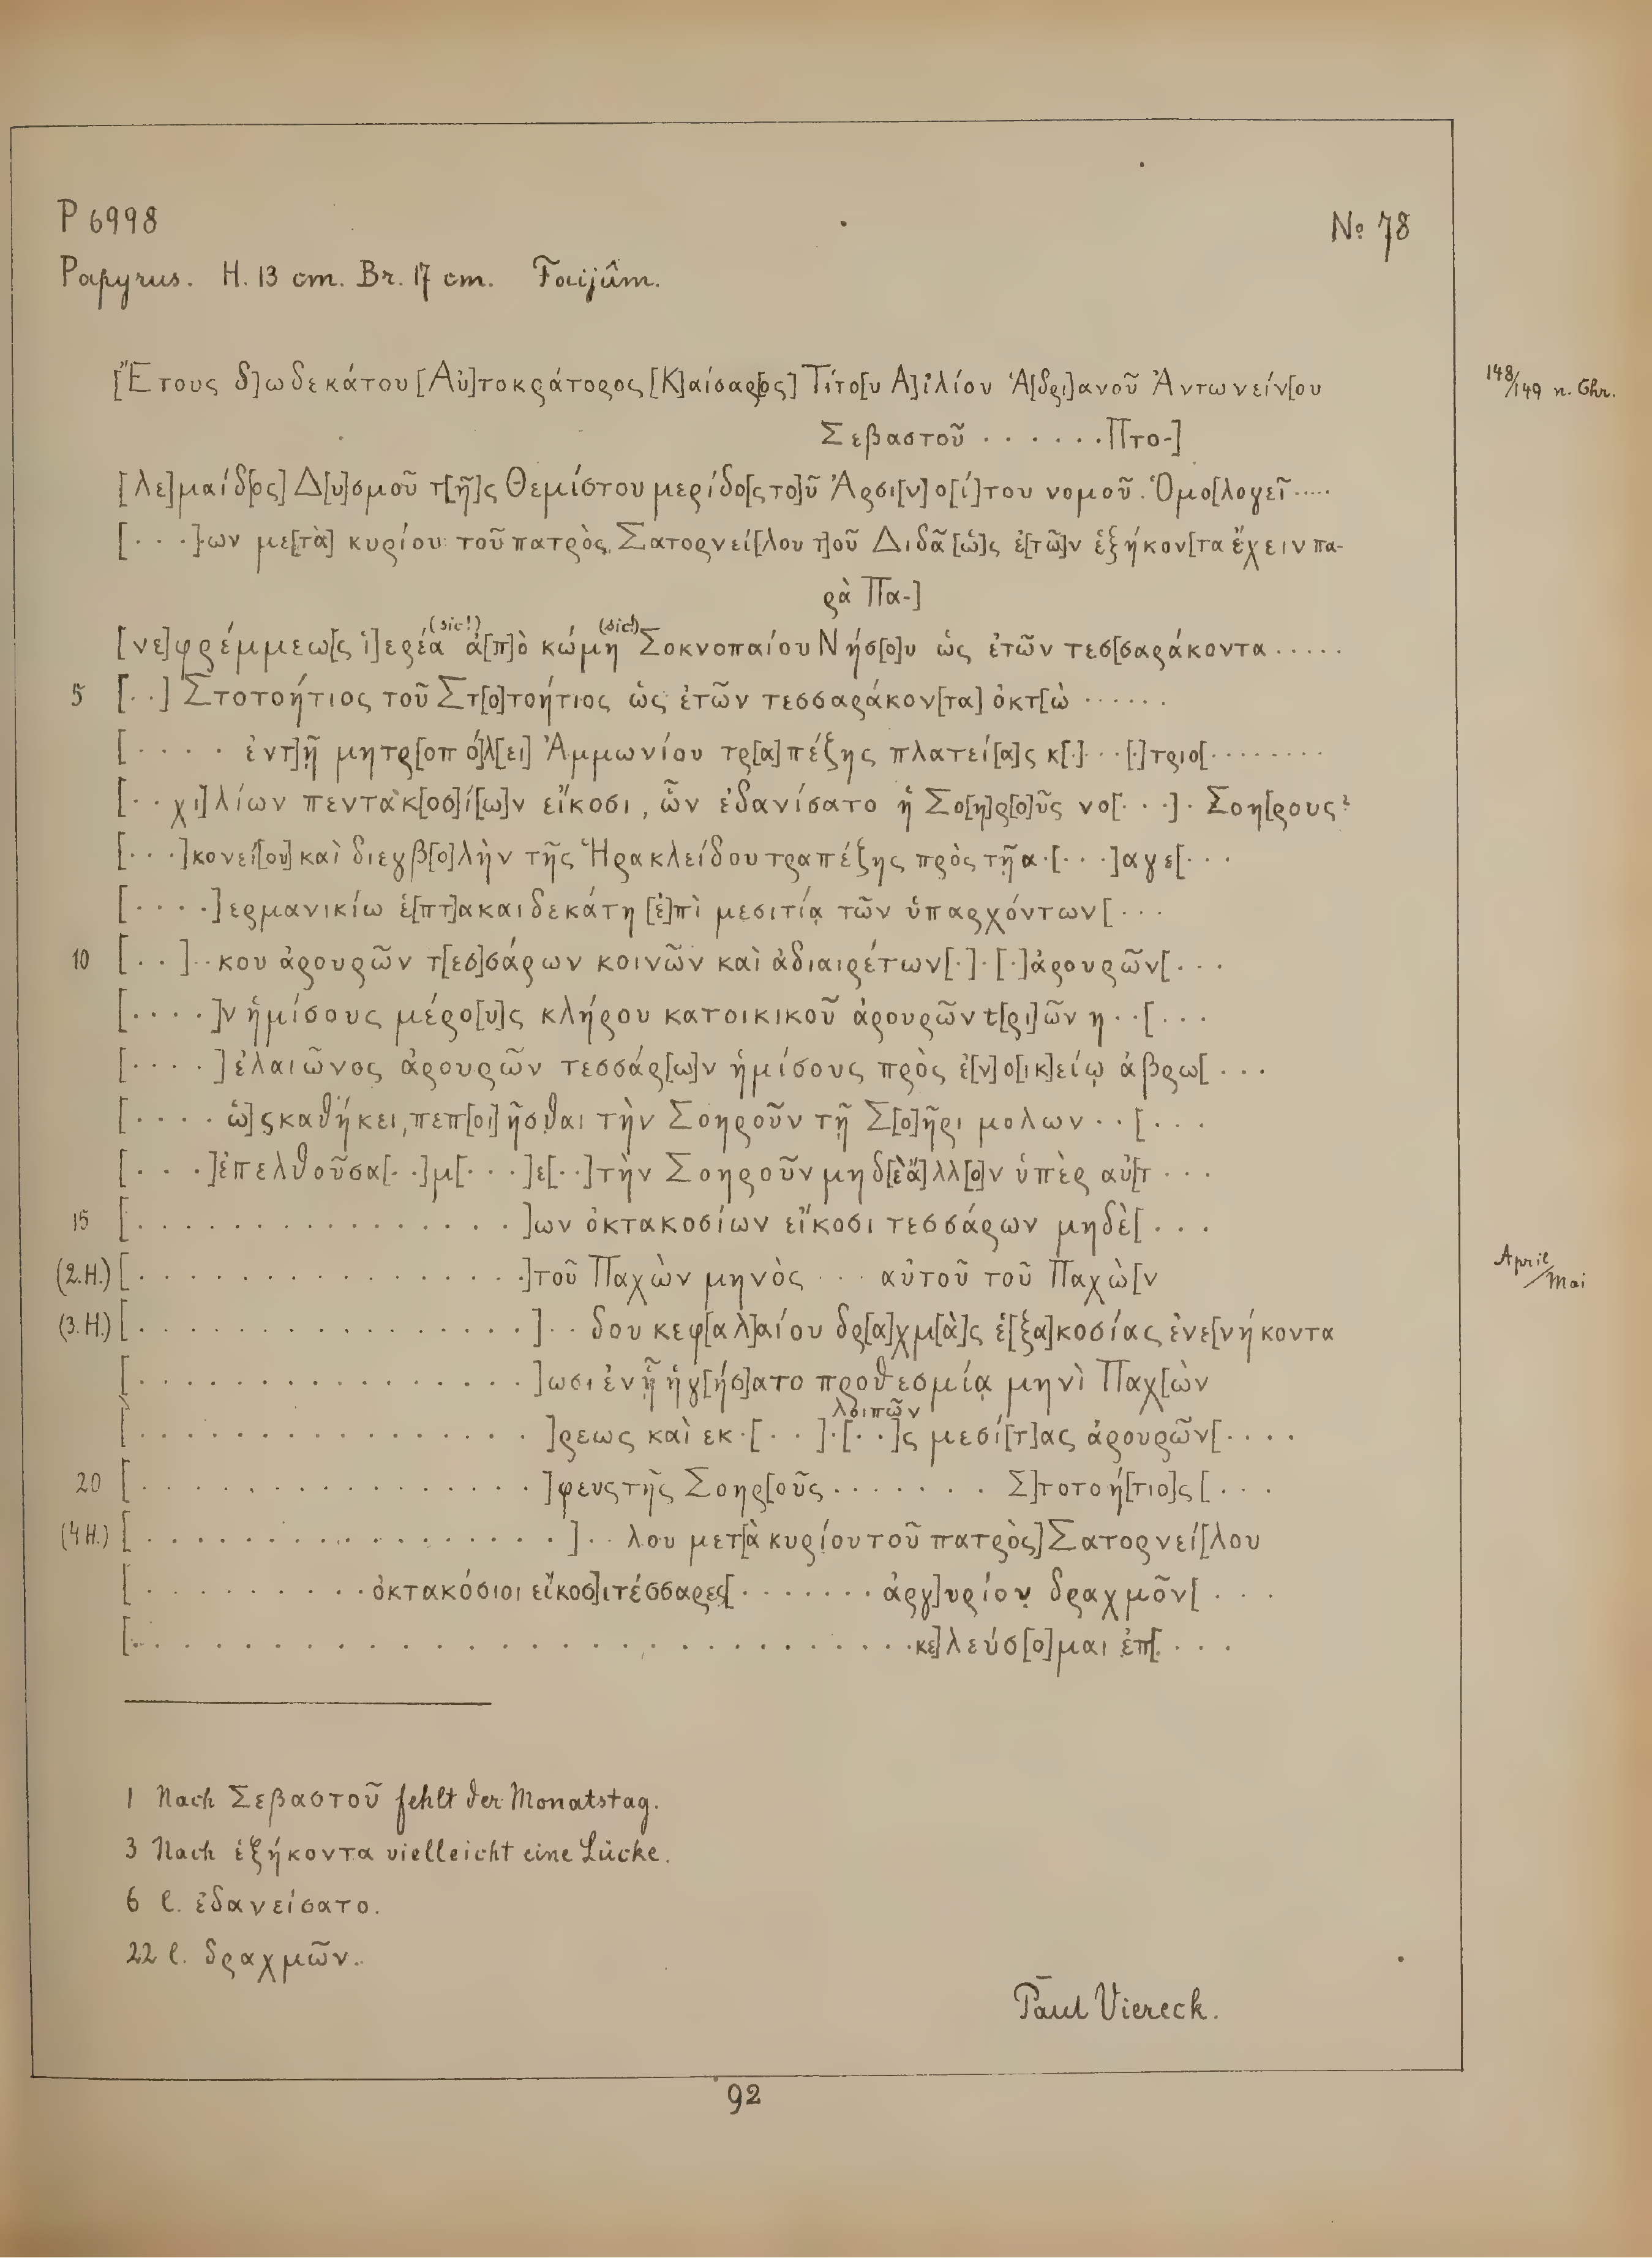 P 6998 № 78
Papyrus. H. 13 cm. Br. 17 cm. Faijûm.
[Ἔτους δ]ωδεκάτου [Αὐ]τοκράτορος [Κ]αίσαρ[ος] Τίτο[υ Α]ἰλίου Ἁ[δρι]ανοῦ Ἀντωνείν[ου 148/149 n. Chr.
Σεβαστοῦ · · · · · · · Πτο-]
[λε]μαίδ[ος] Δ[υ]σμοῦ τ[ῆ]ς Θεμίστου μερίδο[ς το]ῦ Ἀρσι[ν]ο[ί]του νομοῦ. Ὁμο[λογεῖ · · · · ·
[· · · ]ων με[τὰ] κυρίου τοῦ πατρὸς Σατορνεί[λου τ]οῦ Διδᾶ [ὡ]ς ἐ[τῶ]ν ἑξήκον[τα ἔχειν πα-
ρὰ Πα-]
[νε]φρέμμεω[ς ἱ]ερέα (sic!) ἀ[π]ὸ κώμη (sic!) Σοκνοπαίου Νήσ[ο]υ ὡς ἐτῶν τεσ[σαράκοντα · · · · ·
5 [· ·] Στοτοήτιος τοῦ Στ[ο]τοήτιος ὡς ἐτῶν τεσσαράκον[τα] ὀκτ[ὼ · · · · · ·
[· · · · ἐν τ]ῇ μητρ[οπόλ[ει] Ἀμμωνίου τρ[α]πέζης πλατεί[α]ς κ[·] · · · [·]τριο[· · · · · · · ·
[· · χι]λίων πεντακ[οσ]ί[ω]ν εἴκοσι, ὧν ἐδανίσατο ἡ Σο[η]ρ[ο]ῦς νο[· · ·] · Σοη[ρους?
[· · ·]κονεί[ου] καὶ διεγβ[ο]λὴν τῆς Ἡρακλείδου τραπέζης πρὸς τῇ α·[· · ·]αγε[· · ·
[· · · ·]ερμανικίω ἑ[πτ]ακαιδεκάτη [ἐ]πὶ μεσιτίᾳ τῶν ὑπαρχόντων[· · ·
10 [· · ] · · κου ἀρουρῶν τ[εσ]σάρων κοινῶν καὶ ἀδιαιρέτων[·] · [·]ἀρουρῶν[· · ·
[· · · ·]ν ἡμίσους μέρο[υ]ς κλήρου κατοικικοῦ ἀρουρῶν τ[ρι]ῶν η · · [· · ·
[· · · · ]ἐλαιῶνος ἀρουρῶν τεσσάρ[ω]ν ἡμίσους πρὸς ἐ[ν]ο[ικ]είῳ ἀβρω[· · ·
[· · · · ὡ]ς καθήκει, πεπ[οι]ῆσθαι τὴν Σοηροῦν τῇ Σ[ο]ῆρι μολων · · [· · ·
[· · · ·]ἐπελθοῦσα[· ·]μ[· · · ]ε[· ·]τὴν Σοηροῦν μηδ[ὲ ἄ]λλ[ο]ν ὑπὲρ αὐ[τ · · ·
15 [· · · · · · · · · · · · · · · ]ων ὀκτακοσίων εἴκοσι τεσσάρων μηδὲ[· · ·
(2. H.) [· · · · · · · · · · · · · · · ·]τοῦ Παχὼν μηνὸς · · · αὐτοῦ τοῦ Παχὼ[ν April/Mai
(3. H.) [· · · · · · · · · · · · · · · · ] · · δου κεφ[αλ]αίου δρ[α]χμ[ὰ]ς ἑ[ξα]κοσίας ἐνε[νήκοντα
[· · · · · · · · · · · · · · · · ]ωσι ἐν ᾗ ἡγ[ήσ]ατο προθεσμίᾳ μηνὶ Παχ[ὼν
λοιπῶν
[· · · · · · · · · · · · · · · · ]ρεως καὶ εκ·[· · ]·[· ·]ς μεσί[τ]ας ἀρουρῶν[· · · ·
20 [· · · · · · · · · · · · · · · · ]φευς τῆς Σοηρ[οῦς · · · · · · · Σ]τοτοή[τιο]ς [· · ·
(4 H.) [· · · · · · · · · · · · · · · · ] · · λου μετ[ὰ κυρίου τοῦ πατρὸς] Σατορνεί[λου
[· · · · · · · · · ὀκτακόσιοι εἴκοσ]ι τέσσαρες[· · · · · · · ἀργ]υρίου δραχμο͂ν[· · ·
[· · · · · · · · · · · · · · · · · · · · · · · · · · · · · κε]λεύσ[ο]μαι ἐπ[· · ·
1 Nach Σεβαστοῦ fehlt der Monatstag.
3 Nach ἑξήκοντα vielleicht eine Lücke.
6 l. ἐδανείσατο.
22 l. δραχμῶν.
Paul Viereck.
92